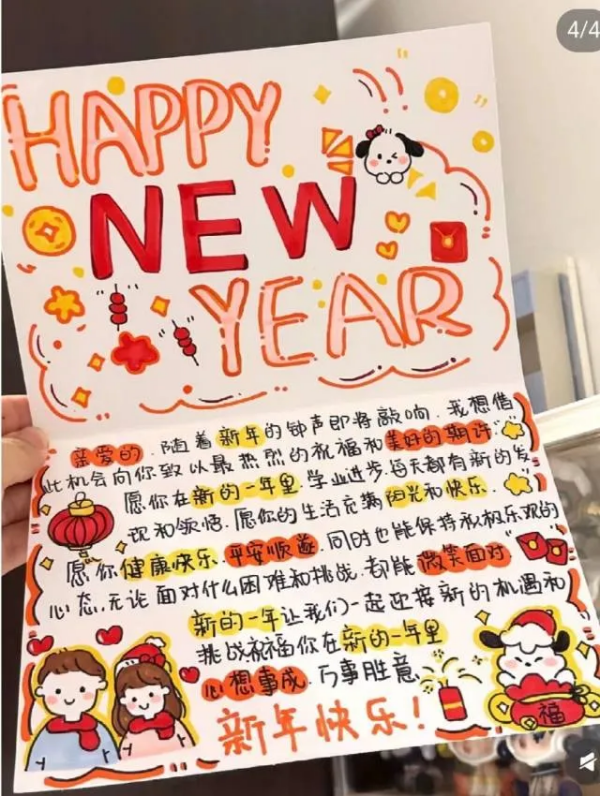 4/4
HAPPY
NEW
YEAR
亲爱的，随着新年的钟声即将敲响，我想借
此机会向你致以最热烈的祝福和美好的期许
愿你在新的一年里，学业进步，每天都有新的发
现和领悟，愿你的生活充满阳光和快乐
愿你健康快乐，平安顺遂，同时也能保持积极乐观的
心态，无论面对什么困难和挑战，都能微笑面对
新的一年让我们一起迎接新的机遇和
挑战祝福你在新的一年里
心想事成，万事胜意
新年快乐！
福